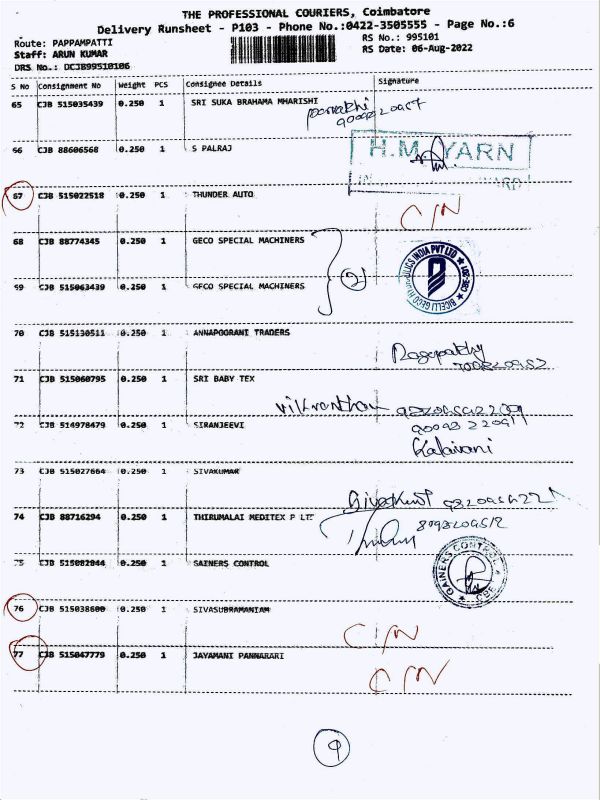 THE PROFESSIONAL COURIERS, Coimbatore
Delivery Runsheet - P103 - Phone No.:0422-3505555 - Page No.:6
Route: PAPPAMPATTI
RS No.: 995101
Staff: ARUN KUMAR
RS Date: 06-Aug-2022
DRS No.: DCJB99510106
S No Consignment No Weight PCS Consignee Details Signature
65 CJB 515035439 0.250 1 SRI SUKA BRAHAMA MHARISHI
66 CJB 88606568 0.250 1 S PALRAJ
H.M. YARN
67 CJB 515022518 0.250 1 THUNDER AUTO
C/N
68 CJB 88774345 0.250 1 GECO SPECIAL MACHINERS
69 CJB 515063439 0.250 1 GECO SPECIAL MACHINERS
2
70 CJB 515130511 0.250 1 ANNAPOORANI TRADERS
71 CJB 515060795 0.250 1 SRI BABY TEX
72 CJB 514978479 0.250 1 SIRANJEEVI
Kalaivani
73 CJB 515027664 0.250 1 SIVAKUMAR
74 CJB 88716294 0.250 1 THIRUMALAI MEDITEX P LTE
75 CJB 515082044 0.250 1 SAINERS CONTROL
GAINERS CONTROL
CBE
76 CJB 515038600 0.250 1 SIVASUBRAMANIAM
C/N
77 CJB 515047779 0.250 1 JAYAMANI PANNARARI
C/N
9